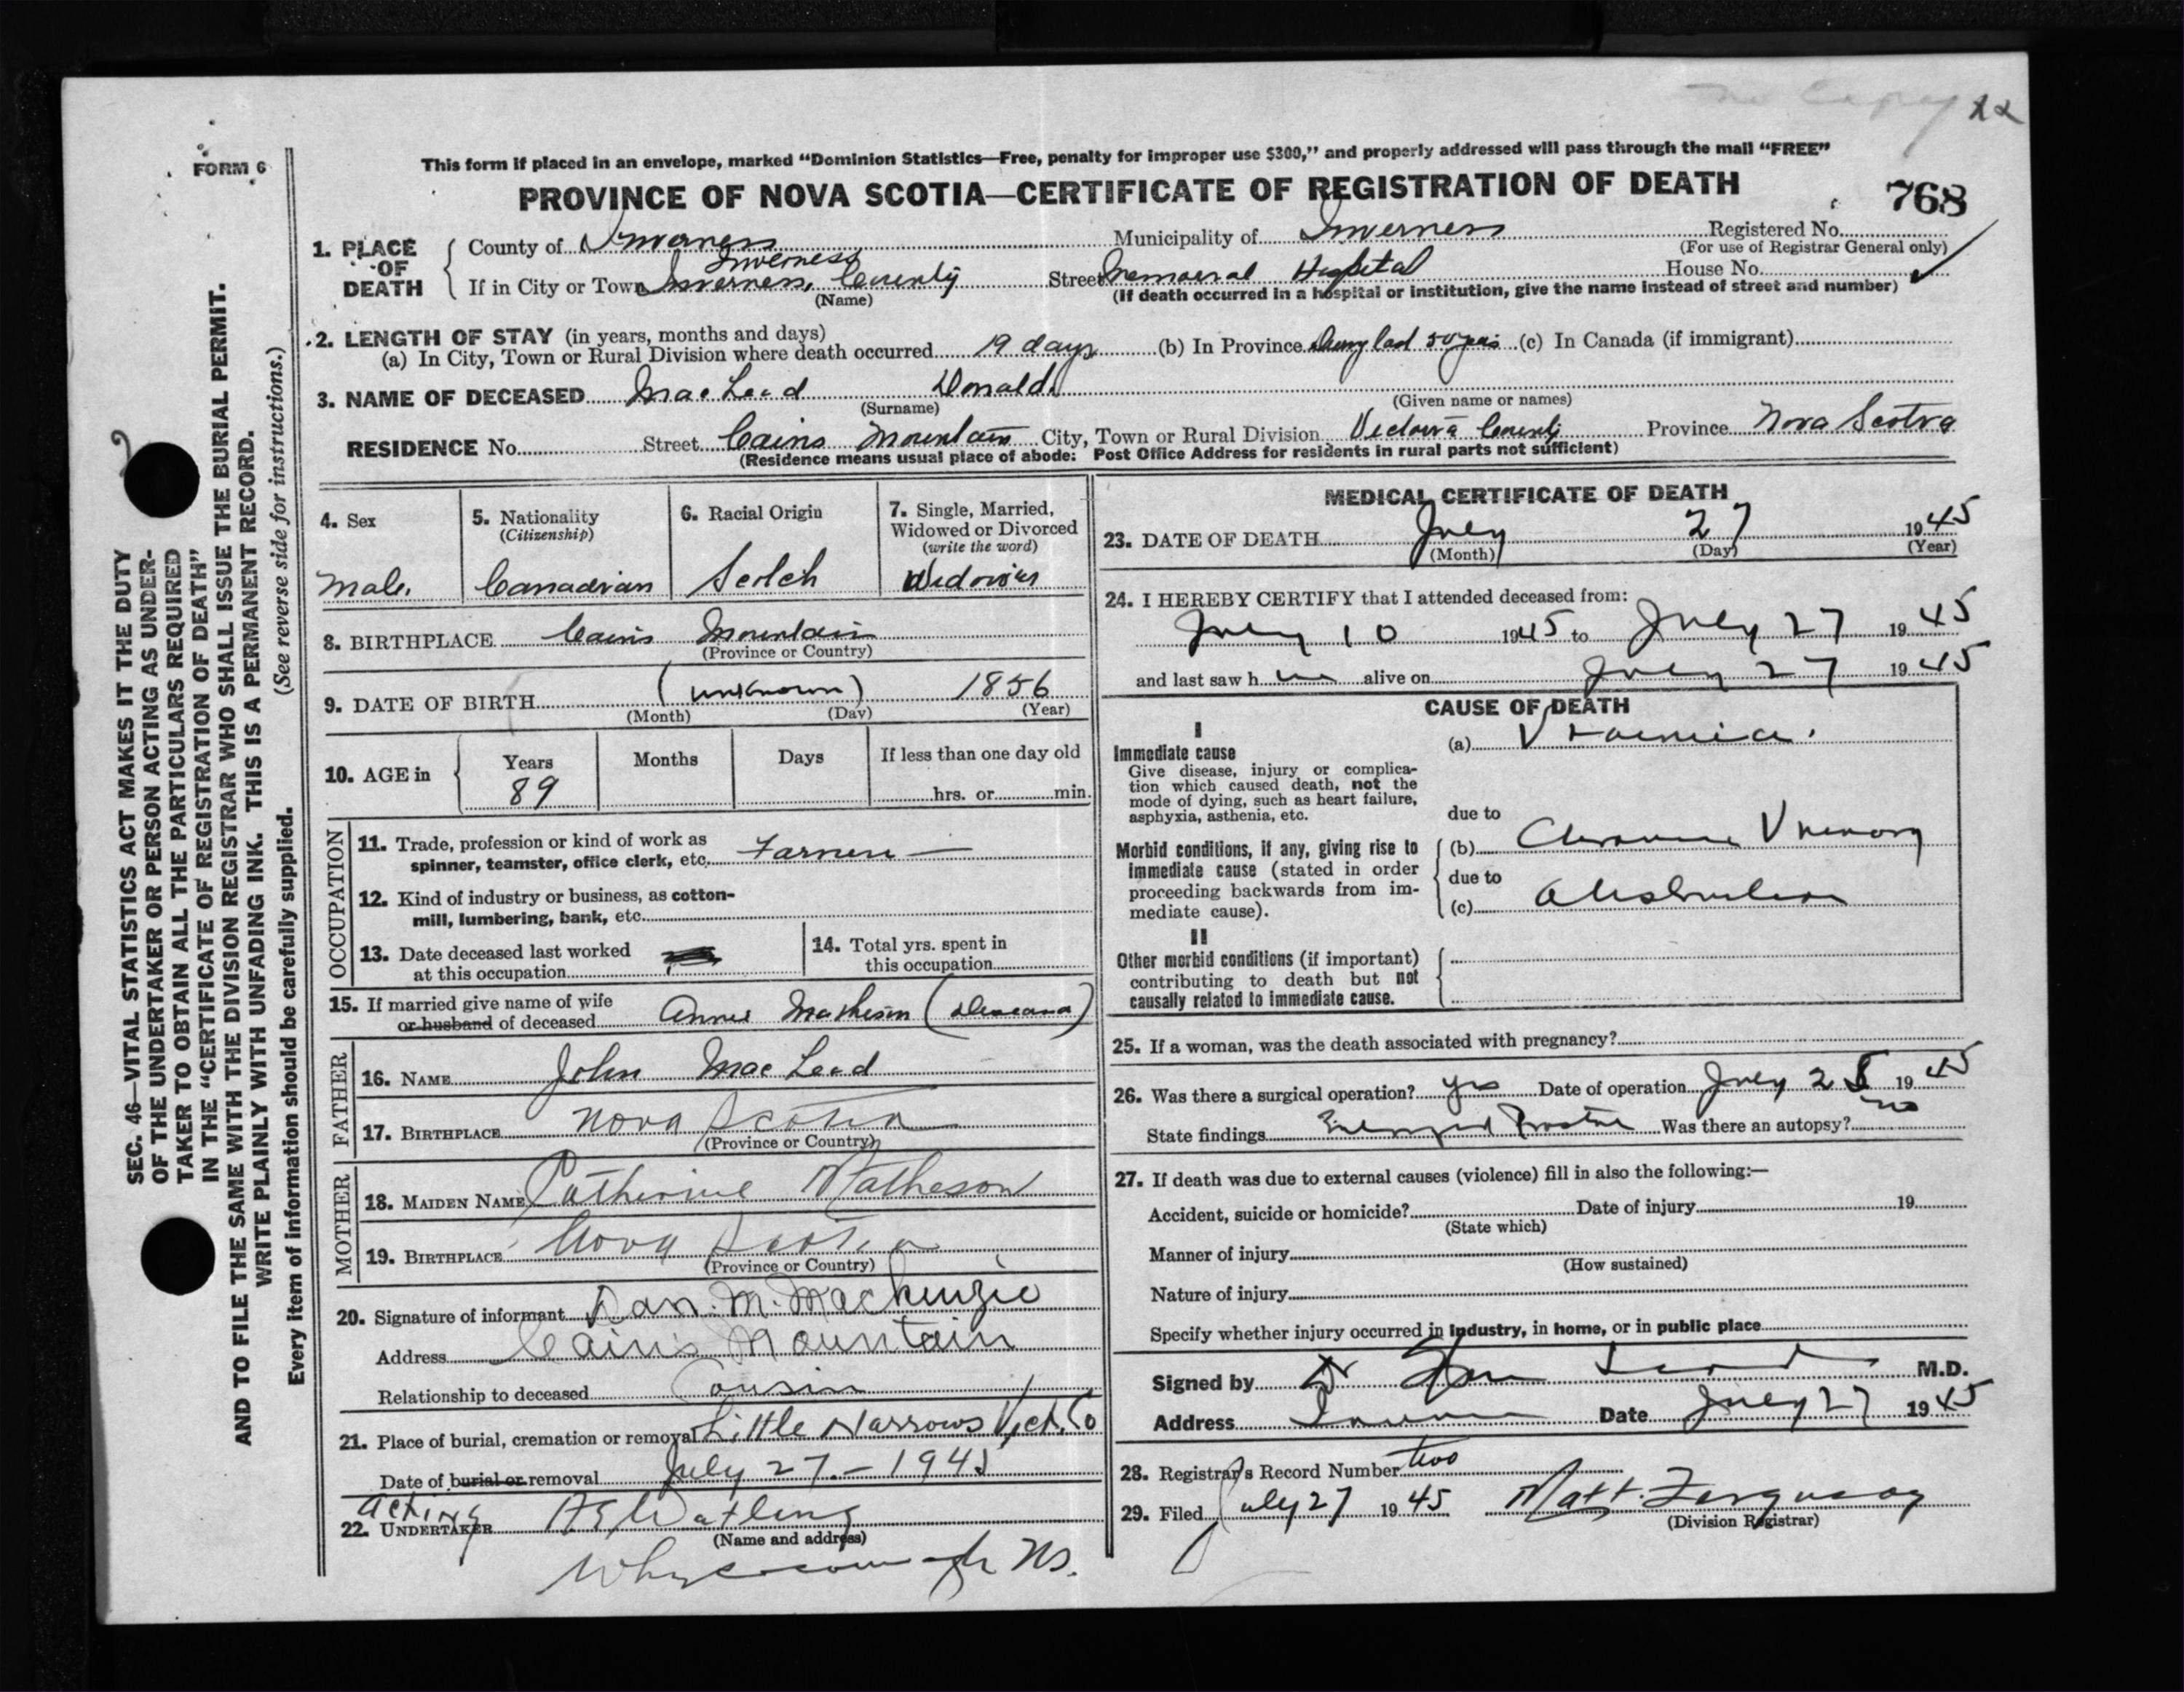 No Copy
22
FORM 6
This form if placed in an envelope, marked “Dominion Statistics—Free, penalty for improper use $300,” and properly addressed will pass through the mail “FREE”
PROVINCE OF NOVA SCOTIA—CERTIFICATE OF REGISTRATION OF DEATH
768
1. PLACE OF DEATH
County of Inverness Municipality of Inverness Registered No.
(For use of Registrar General only)
Inverness
If in City or Town Inverness, County Street Memorial Hospital House No.
(Name) (If death occurred in a hospital or institution, give the name instead of street and number)
2. LENGTH OF STAY (in years, months and days)
(a) In City, Town or Rural Division where death occurred 19 days (b) In Province last 50 (c) In Canada (if immigrant)
3. NAME OF DECEASED MacLeod Donald
(Surname) (Given name or names)
RESIDENCE No. Street Cains Mountain City, Town or Rural Division Victoria County Province Nova Scotia
(Residence means usual place of abode: Post Office Address for residents in rural parts not sufficient)
4. Sex
Male
5. Nationality
(Citizenship)
Canadian
6. Racial Origin
Scotch
7. Single, Married,
Widowed or Divorced
(write the word)
8. BIRTHPLACE Cains Mountain
(Province or Country)
9. DATE OF BIRTH (unknown) 1856
(Month) (Day) (Year)
10. AGE in
Years
89
Months
Days
If less than one day old
hrs. or min.
OCCUPATION
11. Trade, profession or kind of work as
spinner, teamster, office clerk, etc. Farmer —
12. Kind of industry or business, as cotton-
mill, lumbering, bank, etc.
13. Date deceased last worked
at this occupation
14. Total yrs. spent in
this occupation
15. If married give name of wife
or husband of deceased Annie Matheson (Deceased)
FATHER
16. NAME John MacLeod
17. BIRTHPLACE Nova Scotia
(Province or Country)
MOTHER
18. MAIDEN NAME Catherine Matheson
19. BIRTHPLACE Nova Scotia
(Province or Country)
20. Signature of informant Dan. M. MacKenzie
Address Cain's Mountain
Relationship to deceased Cousin
21. Place of burial, cremation or removal Little Narrows Vict. Co
Date of burial or removal July 27 - 1945
Acting
22. UNDERTAKER A E Watling
(Name and address)
Whycocomagh NS.
MEDICAL CERTIFICATE OF DEATH
23. DATE OF DEATH July 27 1945
(Month) (Day) (Year)
24. I HEREBY CERTIFY that I attended deceased from:
July 10 1945 to July 27 1945
and last saw h im alive on July 27 1945
CAUSE OF DEATH
I
Immediate cause
Give disease, injury or complica-
tion which caused death, not the
mode of dying, such as heart failure,
asphyxia, asthenia, etc.
(a) Uraemia.
due to
Morbid conditions, if any, giving rise to
immediate cause (stated in order
proceeding backwards from im-
mediate cause).
(b) Chronic Urinary
due to
(c) Obstruction
II
Other morbid conditions (if important)
contributing to death but not
causally related to immediate cause.
25. If a woman, was the death associated with pregnancy?
26. Was there a surgical operation? yes Date of operation July 25 1945
State findings Enlarged Prostate Was there an autopsy? no
27. If death was due to external causes (violence) fill in also the following:—
Accident, suicide or homicide? Date of injury 19
(State which)
Manner of injury
(How sustained)
Nature of injury
Specify whether injury occurred in industry, in home, or in public place
Signed by M.D.
Address Date July 27 1945
28. Registrar's Record Number two
29. Filed July 27 1945 Matt. Ferguson
(Division Registrar)
SEC. 46—VITAL STATISTICS ACT MAKES IT THE DUTY
OF THE UNDERTAKER OR PERSON ACTING AS UNDER-
TAKER TO OBTAIN ALL THE PARTICULARS REQUIRED
IN THE “CERTIFICATE OF REGISTRATION OF DEATH”
AND TO FILE THE SAME WITH THE DIVISION REGISTRAR WHO SHALL ISSUE THE BURIAL PERMIT.
WRITE PLAINLY WITH UNFADING INK. THIS IS A PERMANENT RECORD.
Every item of information should be carefully supplied. (See reverse side for instructions.)